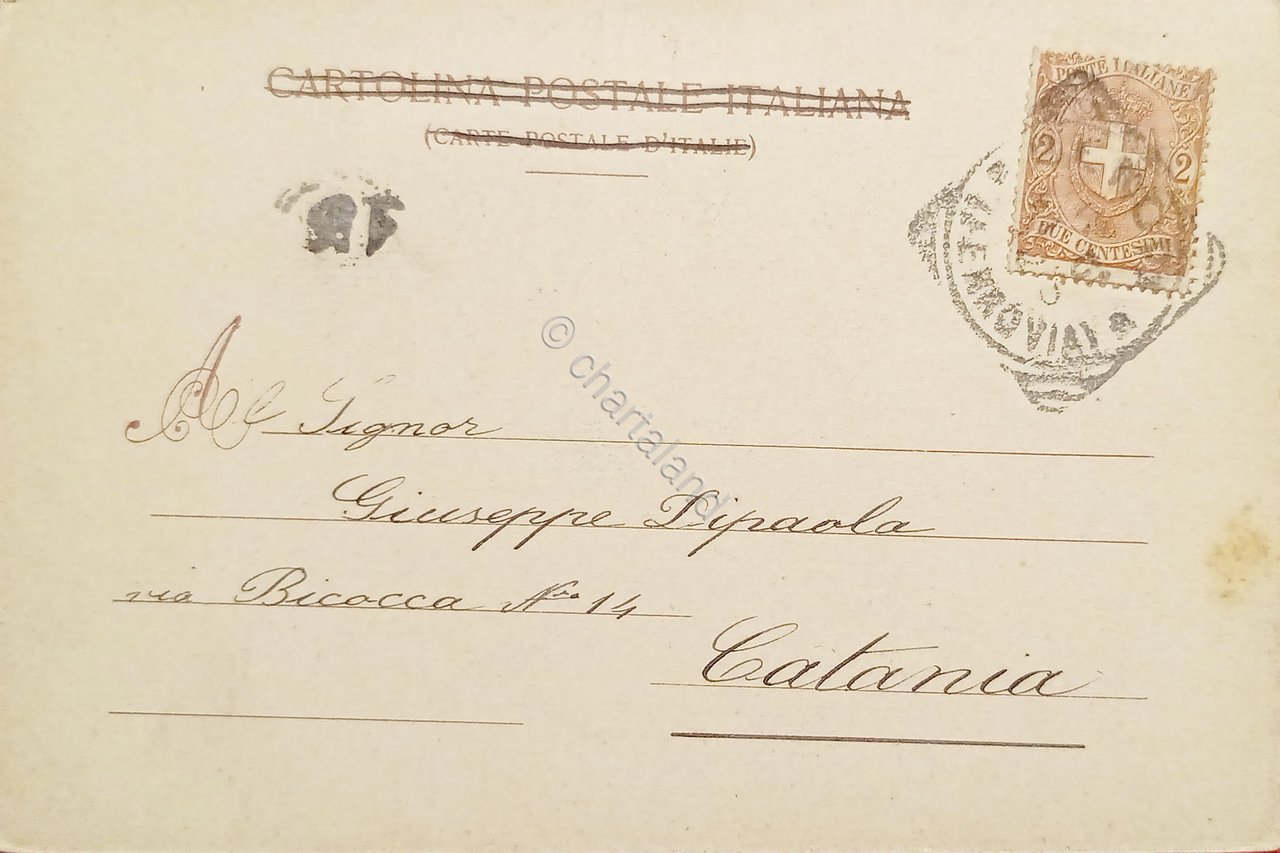 CARTOLINA POSTALE ITALIANA
(CARTE POSTALE D'ITALIE)
POSTE ITALIANE
2 2
DUE CENTESIMI
FERROVIA
Al Signor
Giuseppe Dipaola
via Bicocca Nro 14
Catania
© chartaland